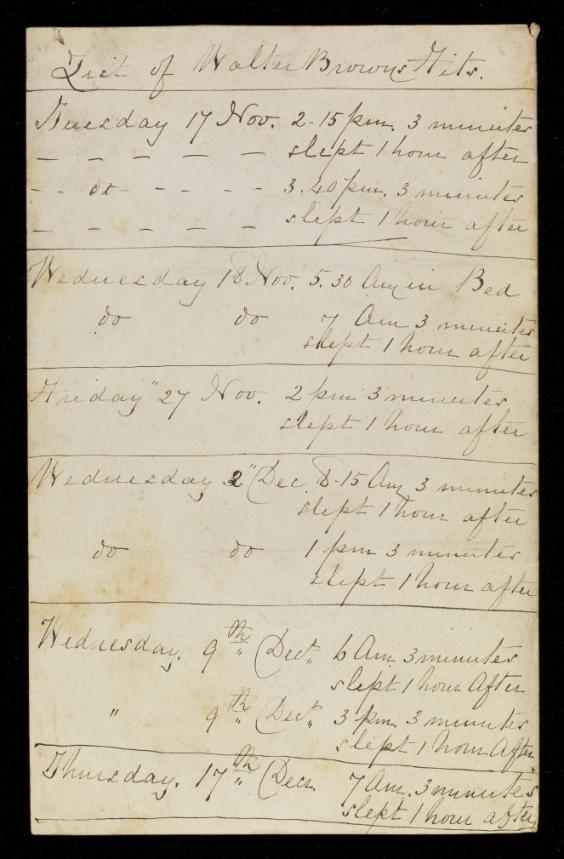 List of Walter Browns Fits.
Tuesday 17 Nov. 2-15 pm. 3 minutes
– – – – – slept 1 hour after
– – do – – – – 3.40 pm. 3 minutes
– – – – – slept 1 hour after
Wednesday 18 Nov. 5.30 Am in Bed
do do 7 Am 3 minutes
slept 1 hour after
Friday " 27 Nov. 2 pm 3 minutes
slept 1 hour after
Wednesday 2" Dec. 8-15 Am 3 minutes
slept 1 hour after
do do 1 pm 3 minutes
slept 1 hour after
Wednesday. 9th Decr. 6 Am. 3 minutes
slept 1 hour After
" 9th Decr. 3 pm. 3 minutes
slept 1 hour After.
Thursday. 17th Decr. 7 Am. 3 minutes
slept 1 hour after